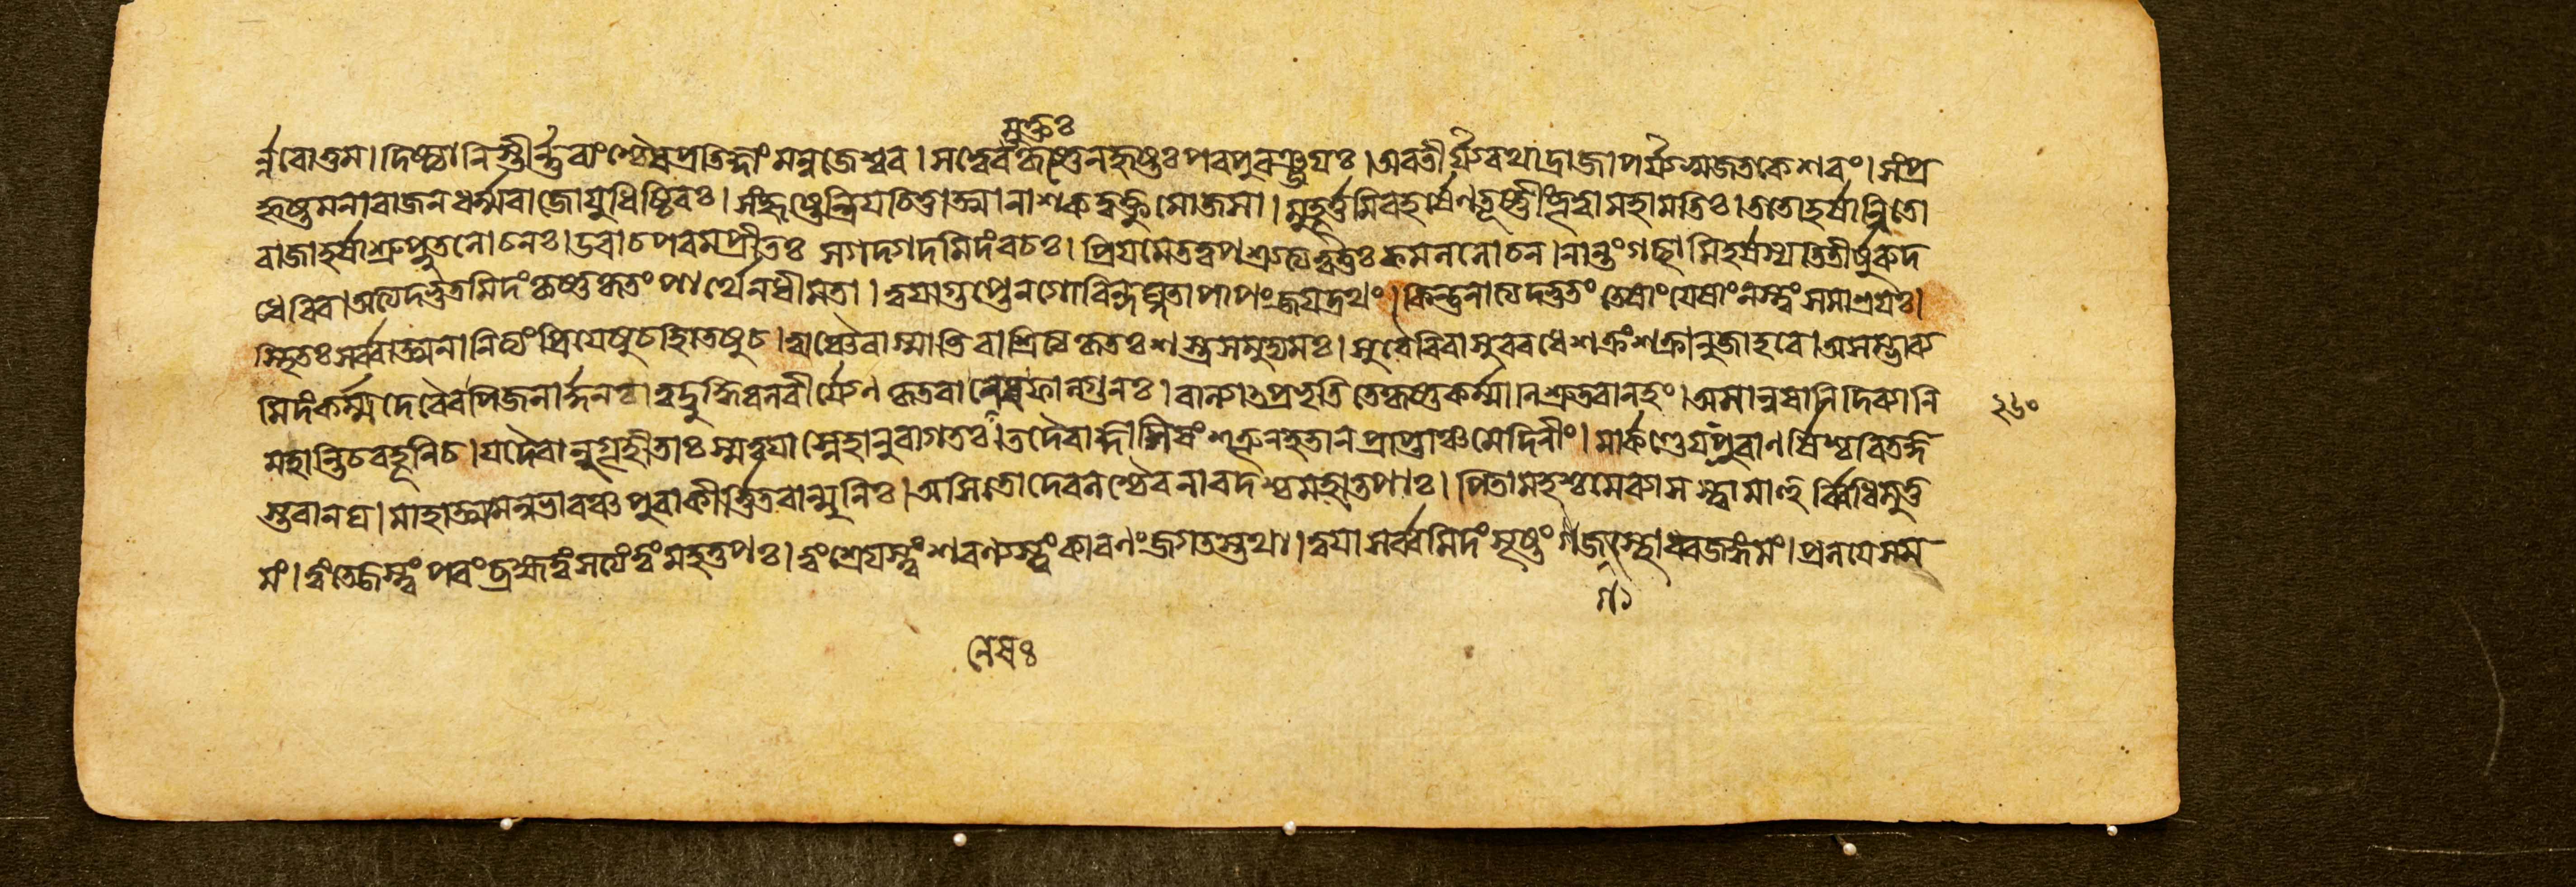 মুক্তঃ
র্ন্নরোত্তম। দিষ্ট্যানিস্তীর্ন্নবাংশ্চৈবপ্রতিজ্ঞাং মনুজেশ্বর। সত্বেবংকৃষ্ণেনহৃষ্টঃপরপুরঞ্জয়ঃ। অবতীর্য্যরথাদ্রাজাপর্য্যষ্বজতকেশবং। সংপ্র
হৃষ্টমনারাজনধর্ম্মরাজোযুধিষ্ঠিরঃ। সংহৃষ্টেন্দ্রিয়চিত্তাত্মানাশকদ্বক্তুমোজসা। মুহূর্ত্তমিবহর্ষেণতূষ্ণীংভূত্বামহামতিঃ। ততোহর্ষান্বিতো
রাজাহর্ষাশ্রুপ্লুতলোচনঃ। উবাচপরমপ্রীতঃ সগদগদমিদংবচঃ। প্রিয়মেতদুপশ্রুত্যত্বত্তঃকমললোচন। নান্তংগচ্ছামিহর্ষস্যতিতীর্ষুরুদ
ধেরিব। অত্যদ্ভুতমিদংকৃষ্ণকৃতংপার্থেনধীমতা। ত্বয়াগুপ্তেনগোবিন্দঘ্নতাপাপংজয়দ্রথং। কিন্তুনাত্যদ্ভুতংতেষাংযেষাংনস্ত্বংসমাশ্রয়ঃ।
স্থিতঃসর্ব্বাত্মনানিত্যংপ্রিয়েষুচহিতেষুচ। ত্বাঞ্চৈবাস্মাভিরাশ্রিত্যকৃতঃশস্ত্রসমুদ্যমঃ। সুরৈরিবাসুরবধেশক্রংশক্রানুজাহবে। অসম্ভাব্য
মিদংকর্ম্মদেবৈরপিজনার্দ্দনঃ। ত্বদ্বুদ্ধিবলবীর্য্যেণকৃতবানেষফাল্গুনঃ। বাল্যাৎপ্রভৃতিতেকৃষ্ণকর্ম্মাণিশ্রুতবানহং। অমানুষানিদিব্যানি
মহান্তিচবহূনিচ। যদৈবানুগৃহীতাঃস্মত্বয়াস্নেহানুরাগতঃ। তদৈবাজ্ঞাশিষংশত্রূনহতানপ্রাপ্তাঞ্চমেদিনীং। মার্কণ্ডেয়ঃপুরাণর্ষিশ্চরিতজ্ঞ
স্তবানঘ। মাহাত্ম্যমনুভাবঞ্চপুরাকীর্ত্তিতবান্মুনিঃ। অসিতোদেবলশ্চৈবনারদশ্চমহাতপাঃ। পিতামহশ্চমেব্যাসস্ত্বামাহুর্ব্বিধিমুত্ত
মং। ত্বংতেজস্ত্বংপরংব্রহ্মত্বংসত্যংত্বংমহত্তপঃ। ত্বংশ্রেয়স্ত্বংশরণ্যস্ত্বংকারণংজগতস্তথা। ত্বয়াসর্ব্বমিদংসৃষ্টংজগৎস্থাবরজঙ্গমং। প্রলয়েসম
২৬০